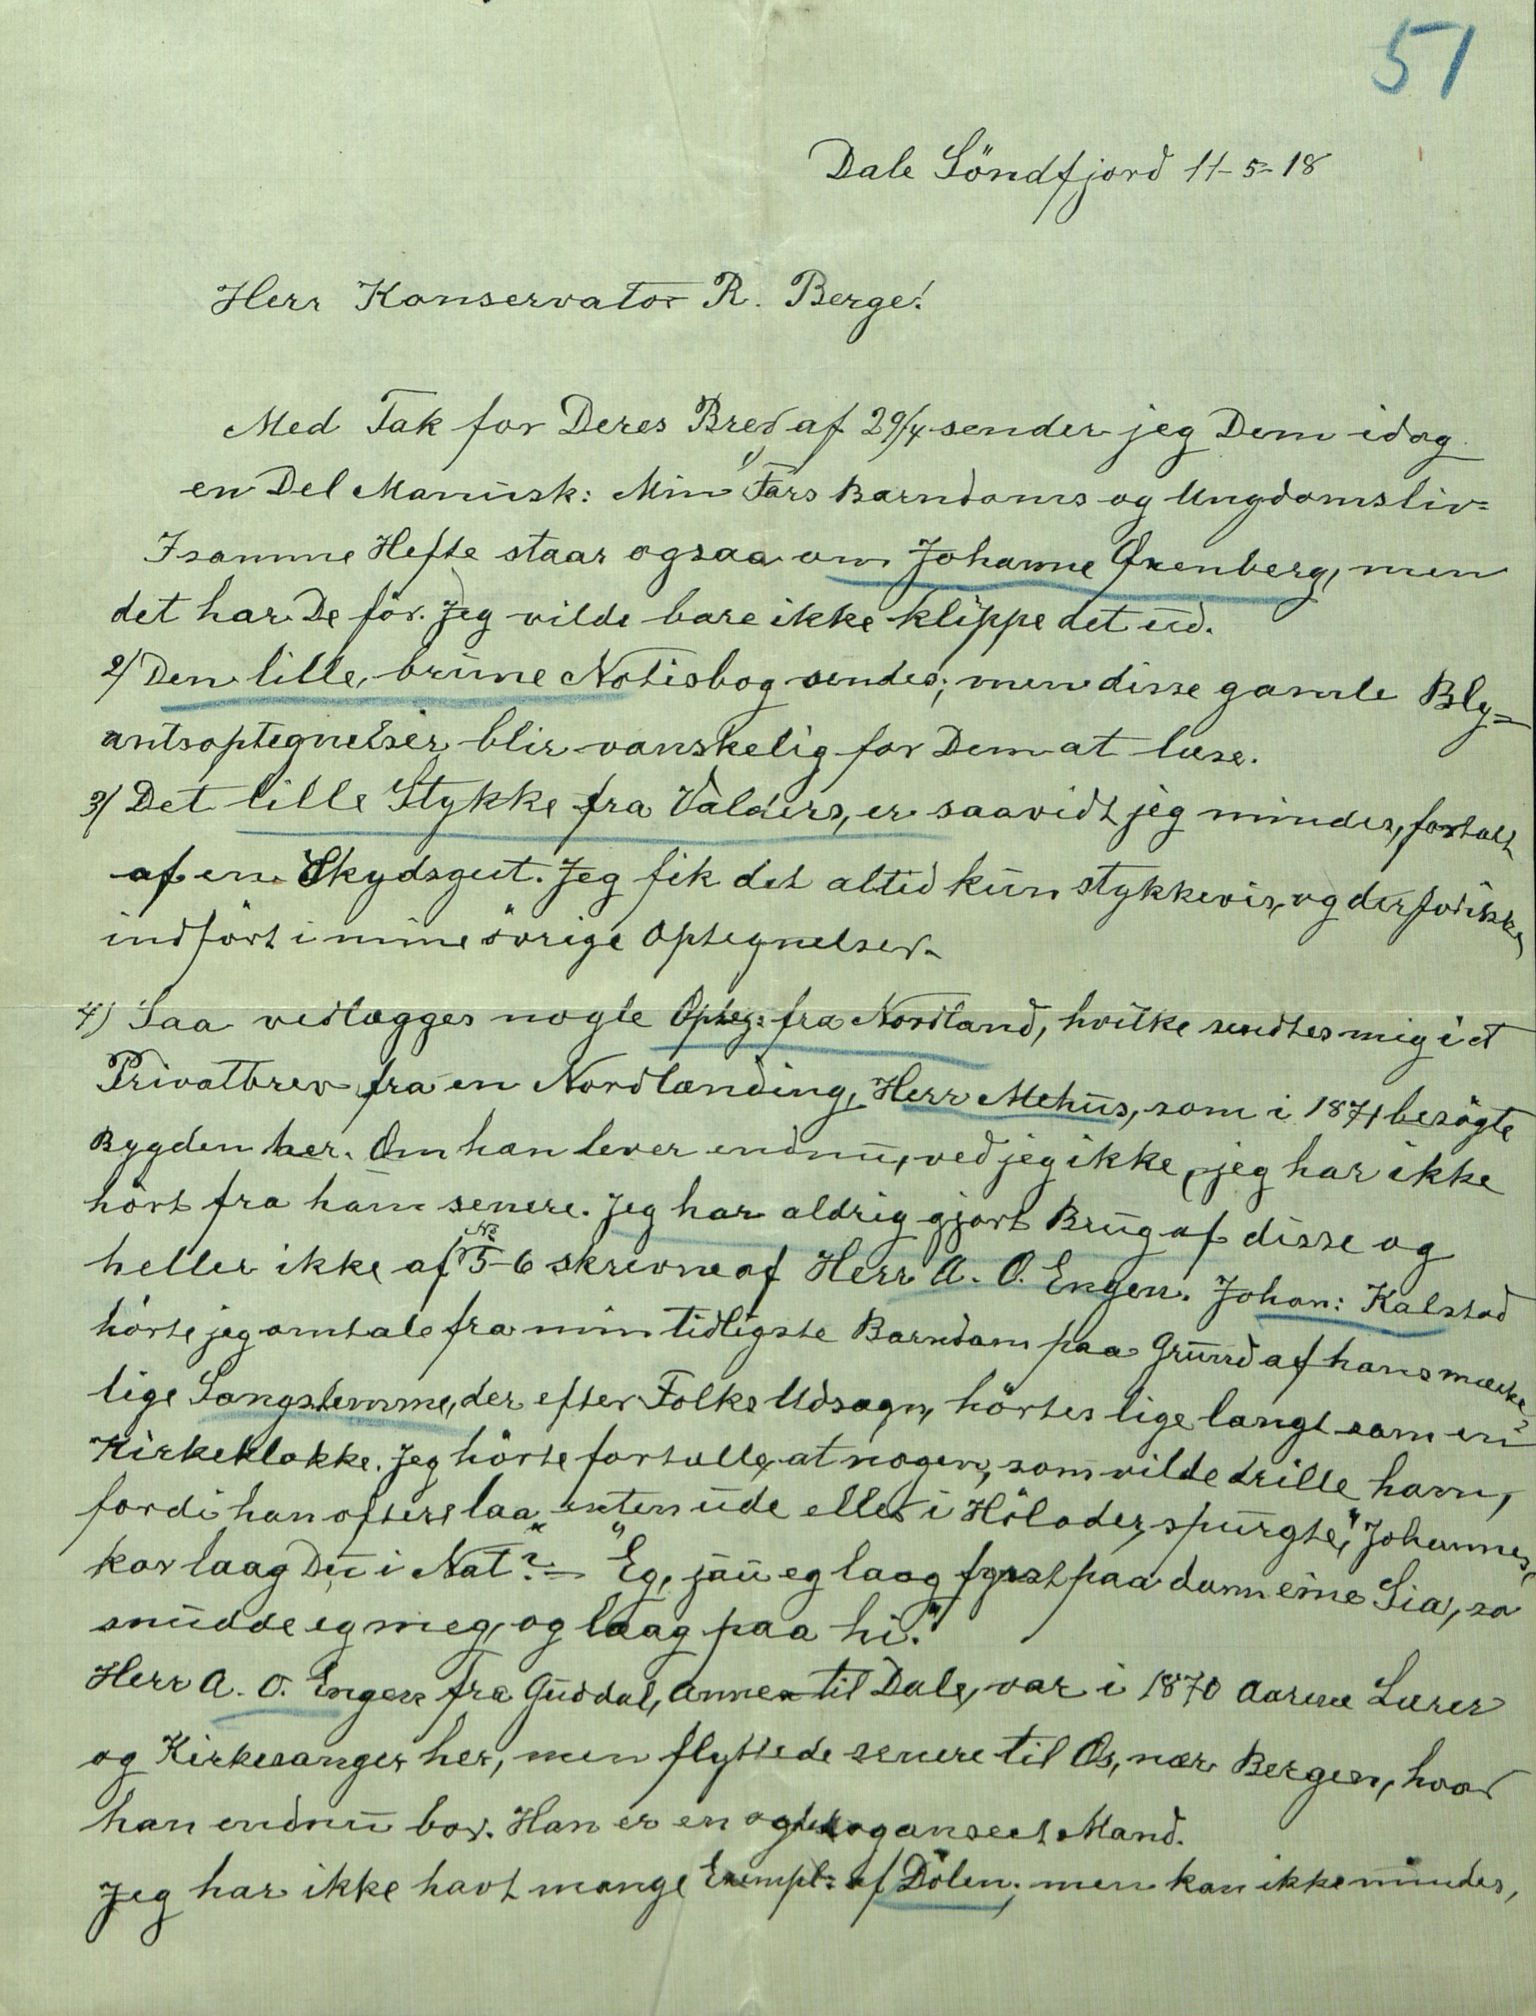 51
Dale Söndfjord 11-5-18
Herr Konservator R. Berge!
Med Tak for Deres Brev af 29/4 sender jeg Dem idag
en Del Manusk: 1) Min Fars Barndoms og Ungdomsliv-
I samme Hefte staar ogsaa om Johanne Oxenberg, men
det har De för. Jeg vilde bare ikke klippe det ud.
2) Den lille, brune Notisbog sendes; men disse gamle Bly=
antsoptegnelser blir vanskelig for Dem at læse.
3) Det lille Stykke fra Valders, er saavidt jeg mindes, fortalt
af en Skydsgut. Jeg fik det altid kun stykkevis, og derfor ikke
indfört i mine övrige Optegnelser.
4) Saa vedlægges nogle Opteg: fra Nordland, hvilke sendtes mig i et
Privatbrev fra en Nordlænding, Herr Mehus, som i 1871 besögte
Bygden her. Om han lever endnu, ved jeg ikke, jeg har ikke
hört fra ham senere. Jeg har aldrig gjort Brug af disse og
heller ikke af No 5-6 skrevne af Herr A. O. Engen. Johan: Kalstad
hörte jeg omtale fra min tidligste Barndom paa Grund af hans mærke=
lige Sangstemme, der efter Folks Udsagn, hörtes lige langt som en
Kirkeklokke. Jeg hörte fortælle, at nogen, som vilde drille ham,
fordi han oftere laa enten ude eller i Hölader, spurgte, "Johannes,
kor laag Du i Nat?" - "Eg, jau eg laag fyrst paa dann eine Sia, so
snudde eg meg, og laag paa hi."
Herr A. O. Engen fra Guddal, Annex til Dale, var i 1870 Aarene Lærer
og Kirkesanger her, men flyttede senere til Os, nær Bergen, hvor
han endnu bor. Han er en agtet og anseet Mand.
Jeg har ikke havt mange Exempl: af Dölen; men kan ikke mindes,